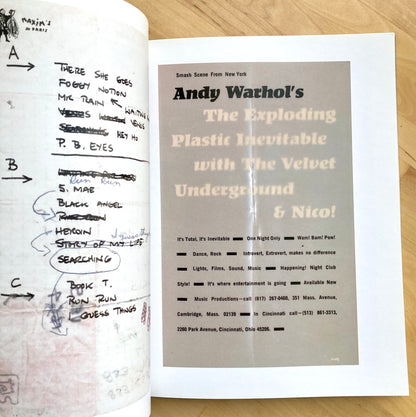 MAXIM'S
DE PARIS
A
THERE SHE GOES
FOGGY NOTION
MR. RAIN
VENUS
SEARCHING KEY HO
P. B. EYES
B
RUN RUN
S. MAE
BLACK ANGEL
HEROIN
STORY OF MY LIFE
SEARCHING
C
BOOK T.
RUN RUN
GUESS THINGS
Smash Scene From New York
Andy Warhol's
The Exploding
Plastic Inevitable
with The Velvet
Underground
& Nico!
It's Total, it's Inevitable — One Night Only — Wam! Bam! Pow!
— Dance, Rock — Introvert, Extrovert, makes no difference
— Lights, Films, Sound, Music — Happening! Night Club
Style! — It's where entertainment is going — Available New
— Music Productions—call (617) 267-0468, 351 Mass. Avenue,
Cambridge, Mass. 02139 — In Cincinnati call—(513) 861-3313,
2260 Park Avenue, Cincinnati, Ohio 45206. —